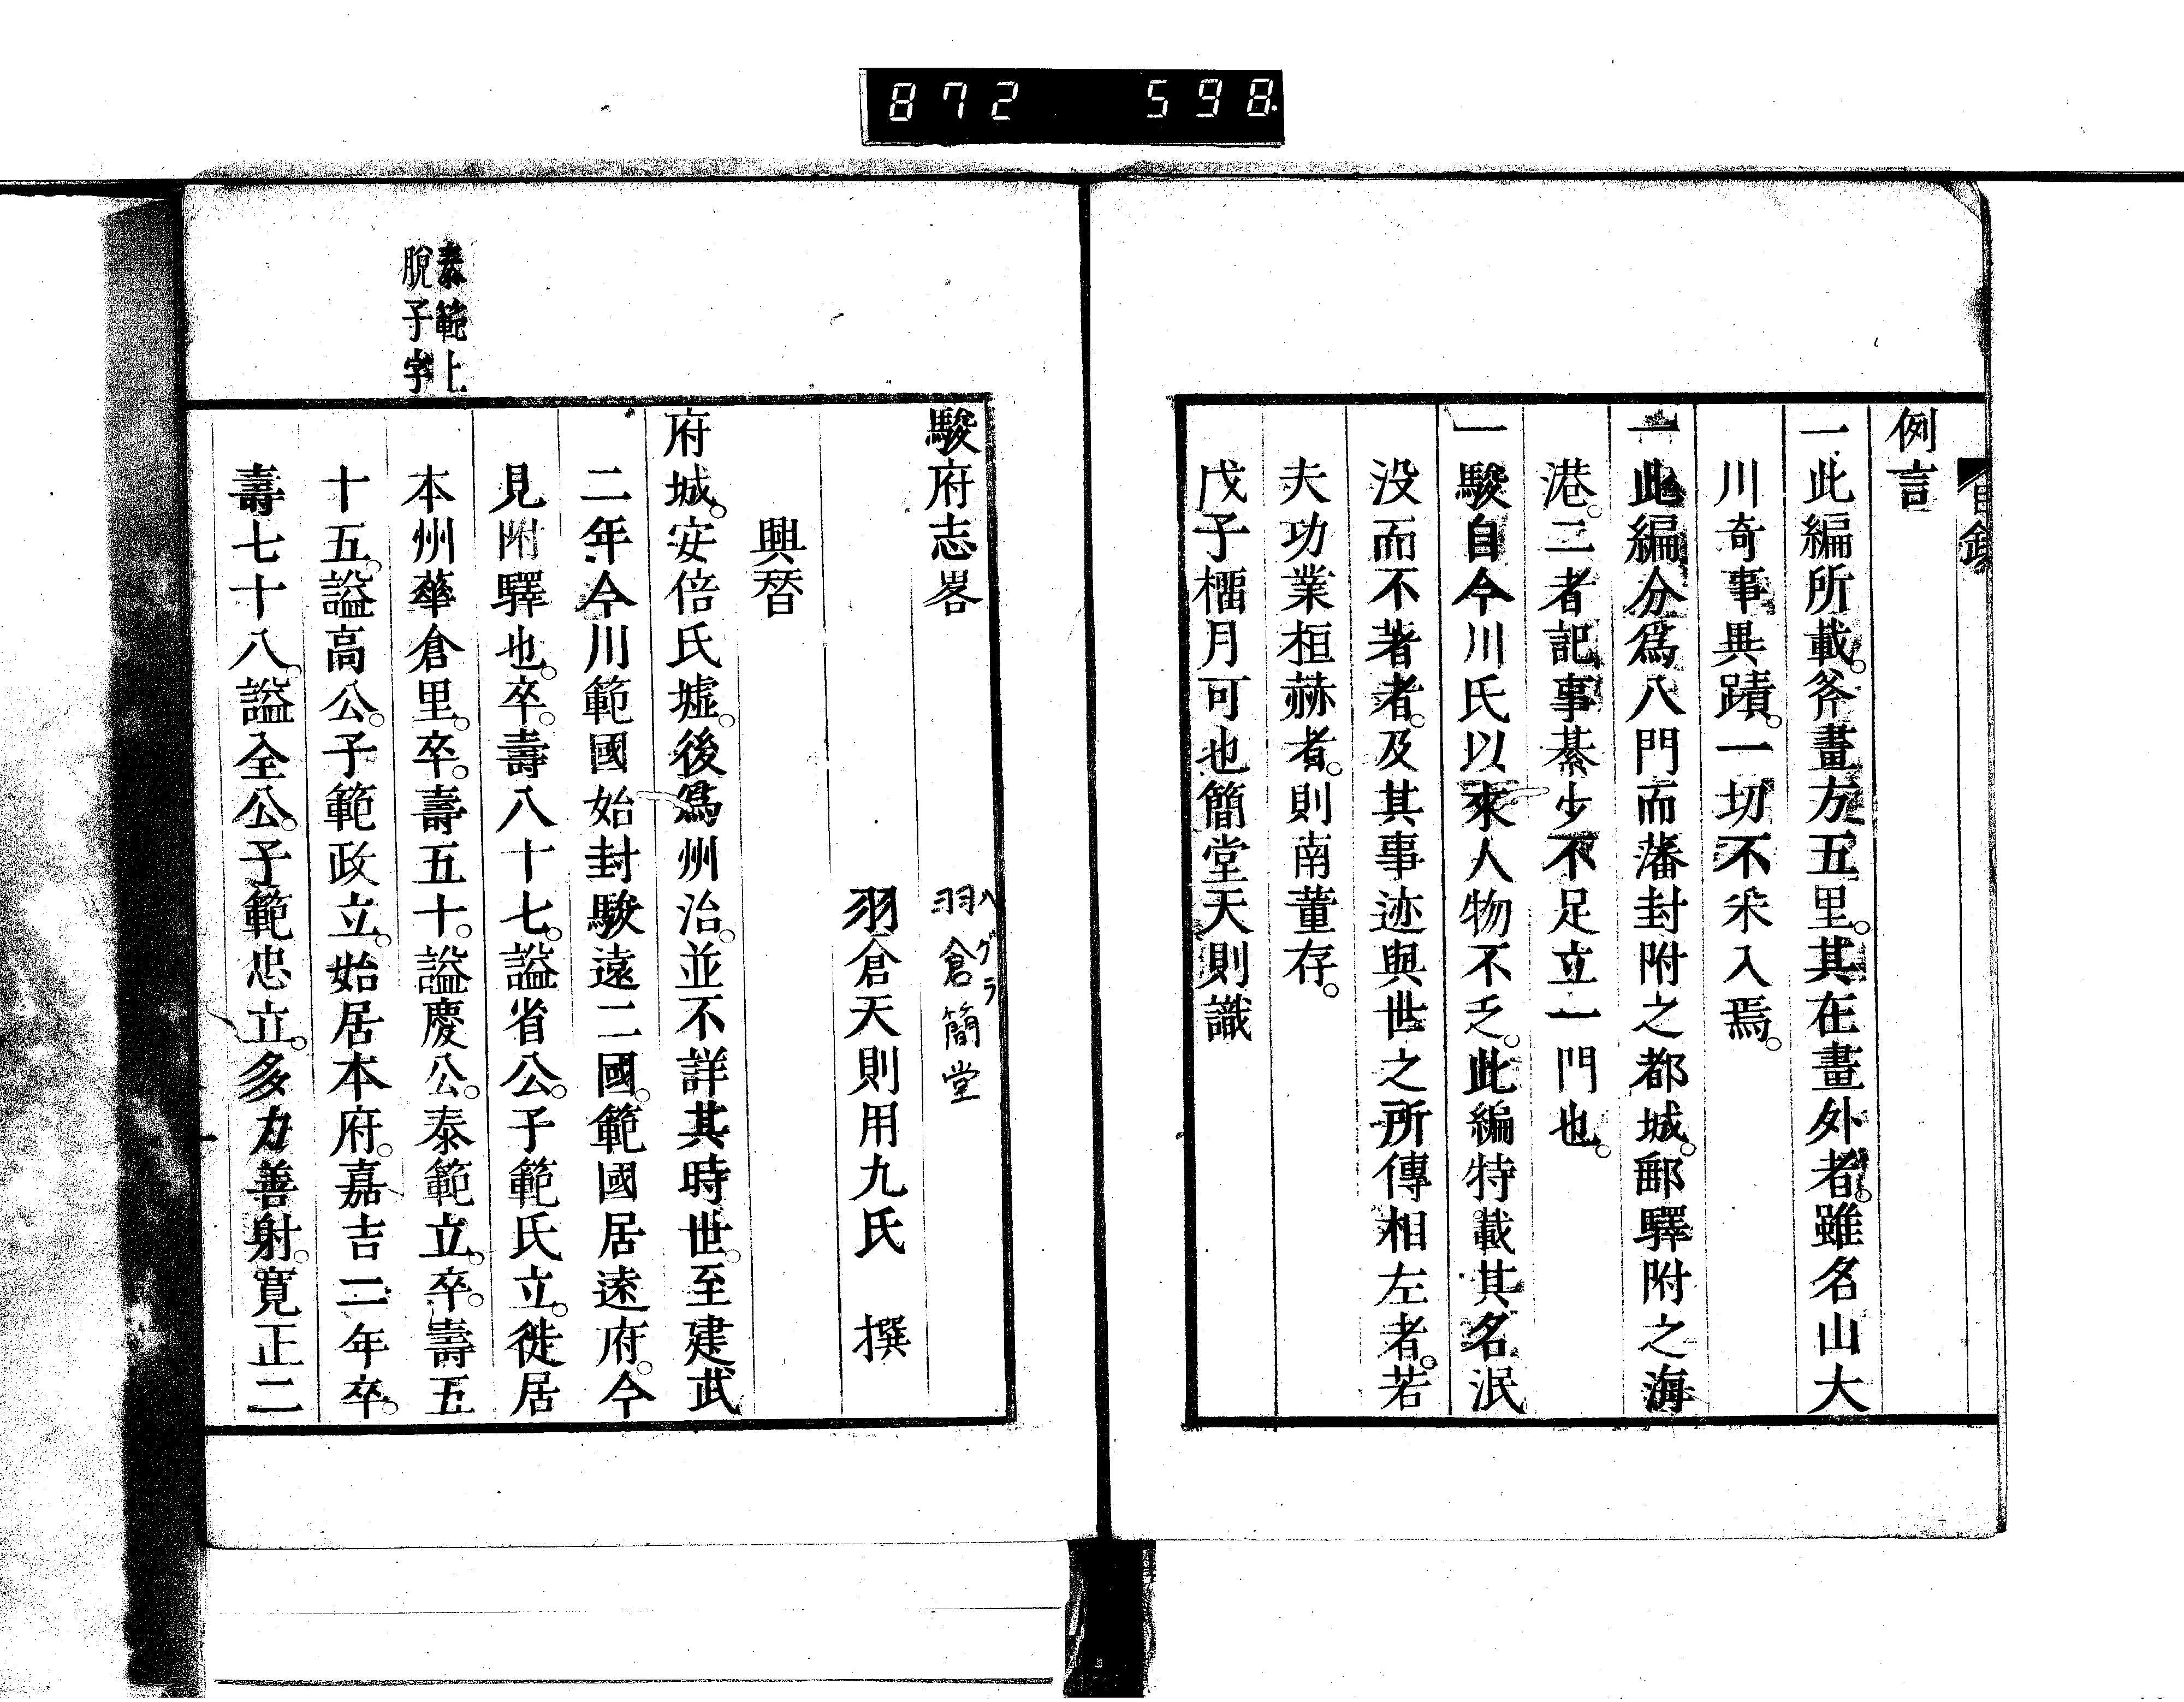 872 598
目錄
例言
一此編所載。斧畫方五里。其在畫外者。雖名山大
川奇事異蹟。一切不采入焉。
一此編分爲八門而藩封附之都城。郵驛附之海
港。二者記事綦少不足立一門也。
一駿自今川氏以來人物不乏。此編特載其名泯
没而不著者。及其事迹與世之所傳相左者。若
夫功業桓赫者。則南董存。
戊子橊月可也簡堂天則識
駿府志畧
羽倉簡堂
ハグラ
羽倉天則用九氏 撰
興朁
府城。安倍氏墟。後爲州治。並不詳其時世。至建武
二年今川範國始封駿遠二國。範國居遠府。今
見附驛也。卒。壽八十七。謚省公。子範氏立。徙居
本州華倉里。卒。壽五十。謚慶公。泰範立。卒。壽五
十五。謚高公。子範政立。始居本府。嘉吉二年卒。
壽七十八。謚全公。子範忠立。多力善射。寛正二
泰範上
脫子字